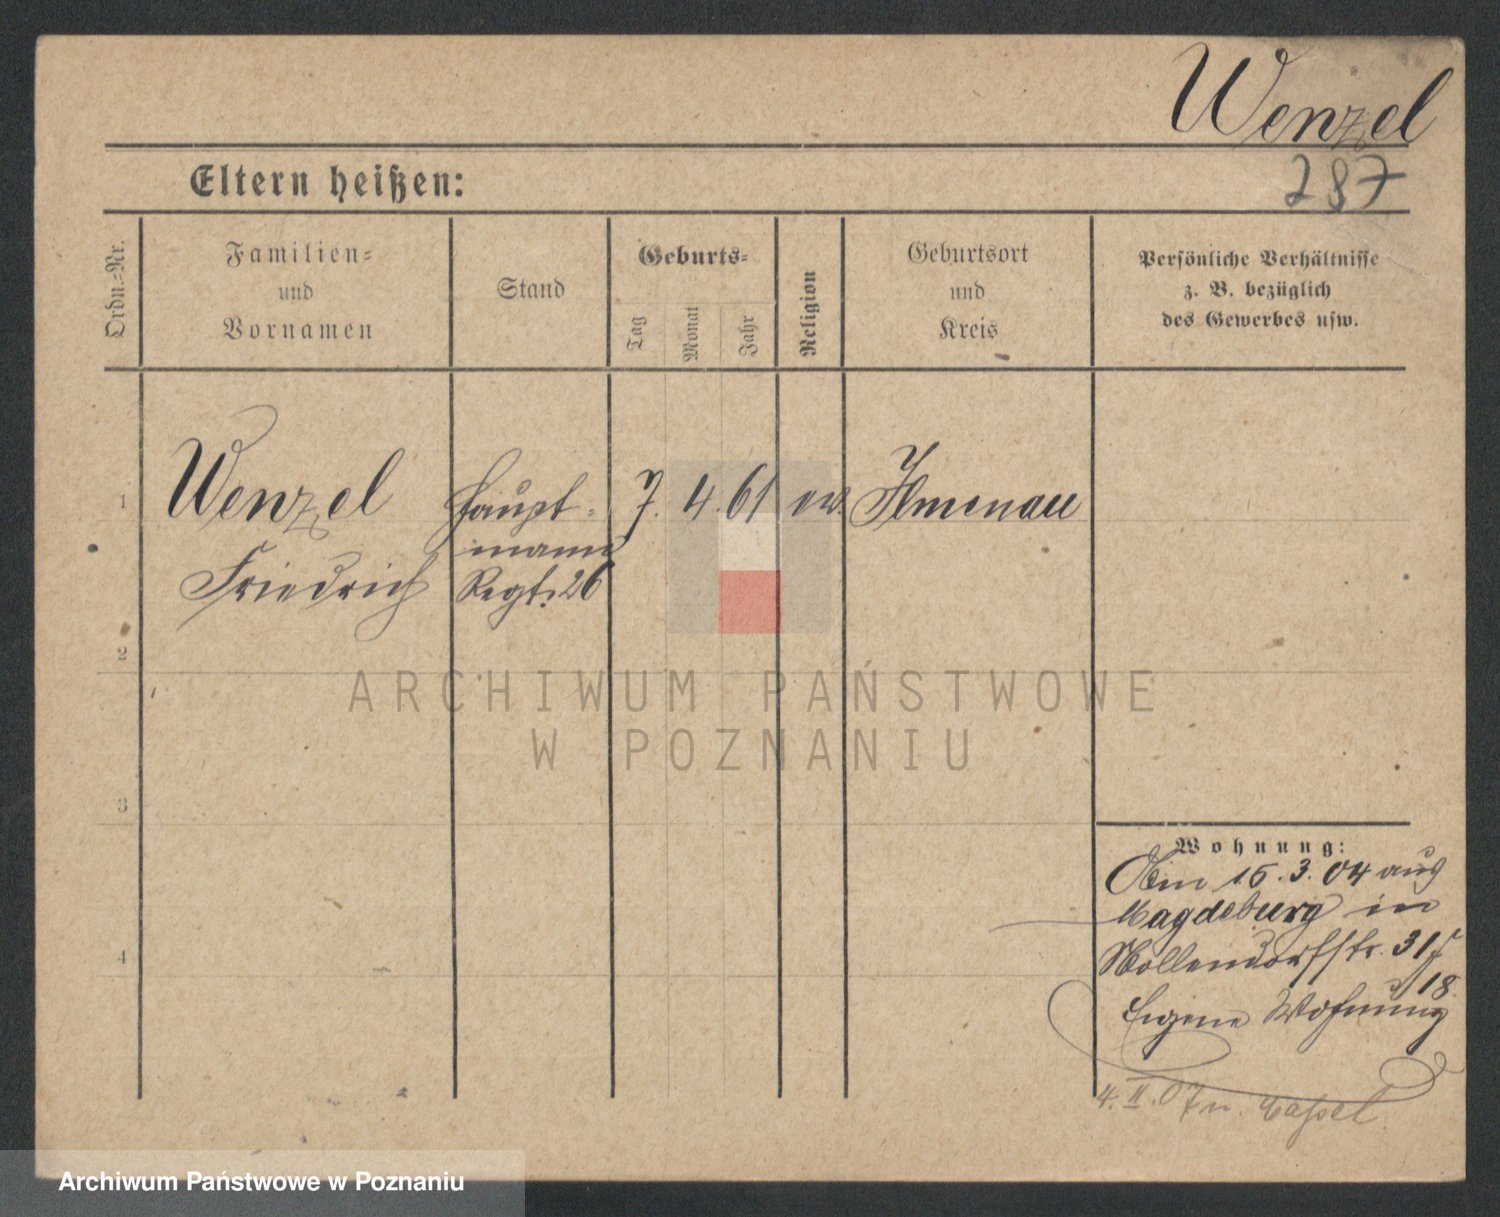 Wenzel
287
Eltern heißen:
Ordn.-Nr.
Familien-
und
Vornamen
Stand
Geburts-
Tag
Monat
Jahr
Religion
Geburtsort
und
Kreis
Persönliche Verhältnisse
z. B. bezüglich
des Gewerbes usw.
1
Wenzel
Friedrich
Haupt-
mann
Regt. 26
7. 4. 61
ev.
Ilmenau
2
3
4
Wohnung:
Am 15.3.04 aus
Magdeburg in
Nollendorfstr. 31
18
Eigene Wohnung
4. II. 07 n. Cassel
ARCHIWUM PAŃSTWOWE
W POZNANIU
Archiwum Państwowe w Poznaniu